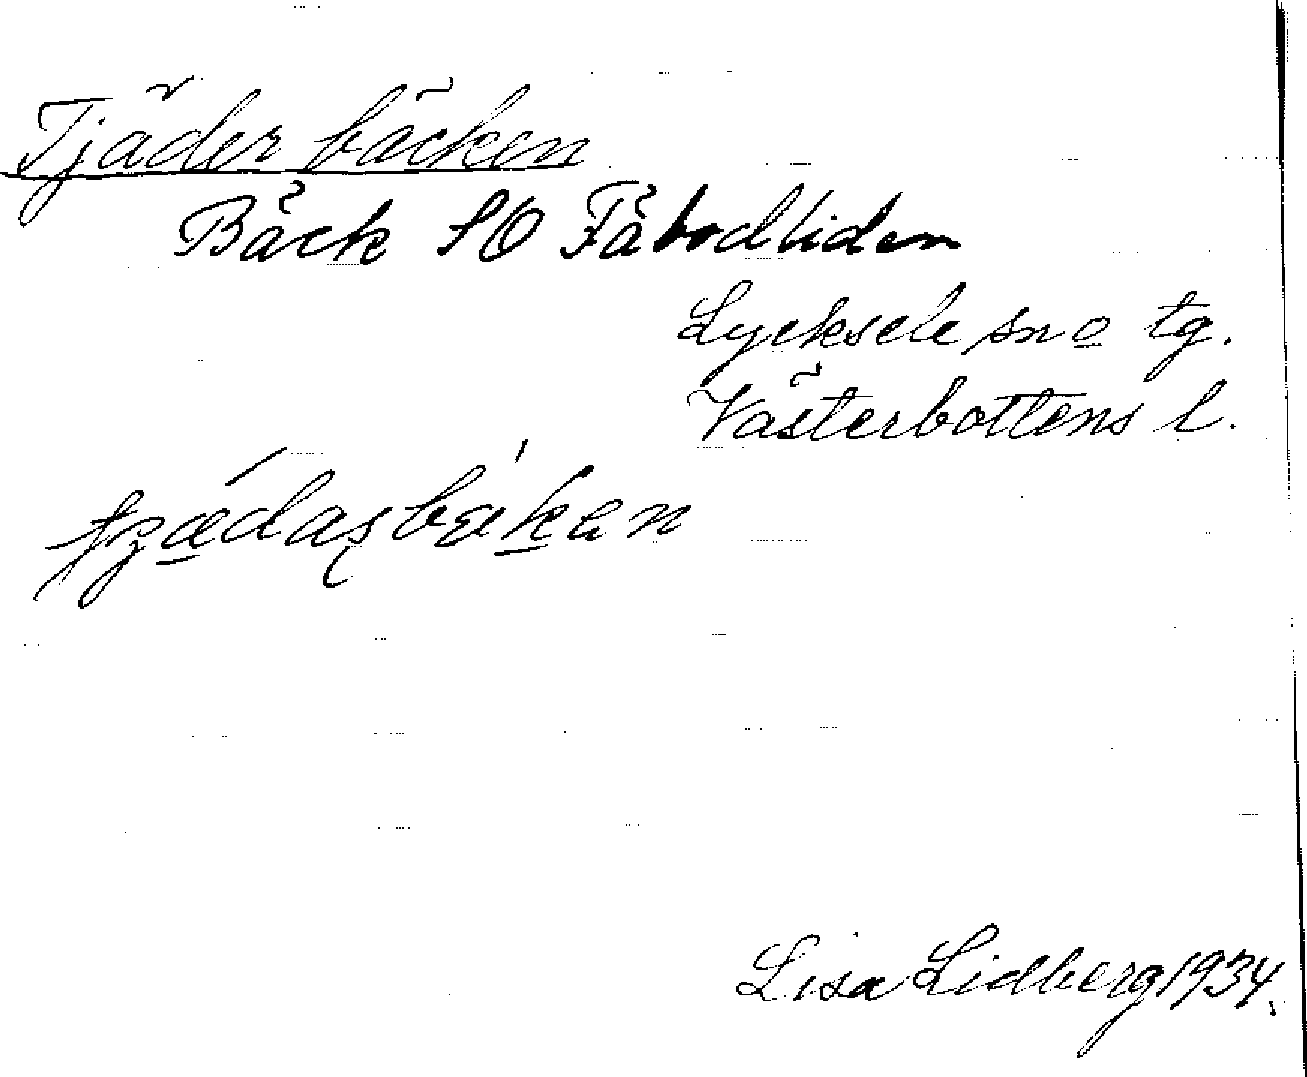 Tjäder bäcken
Bäck SO Fäbodliden
Lycksele sn o tg.
Västerbottens l.
Lisa Lidberg 1934.